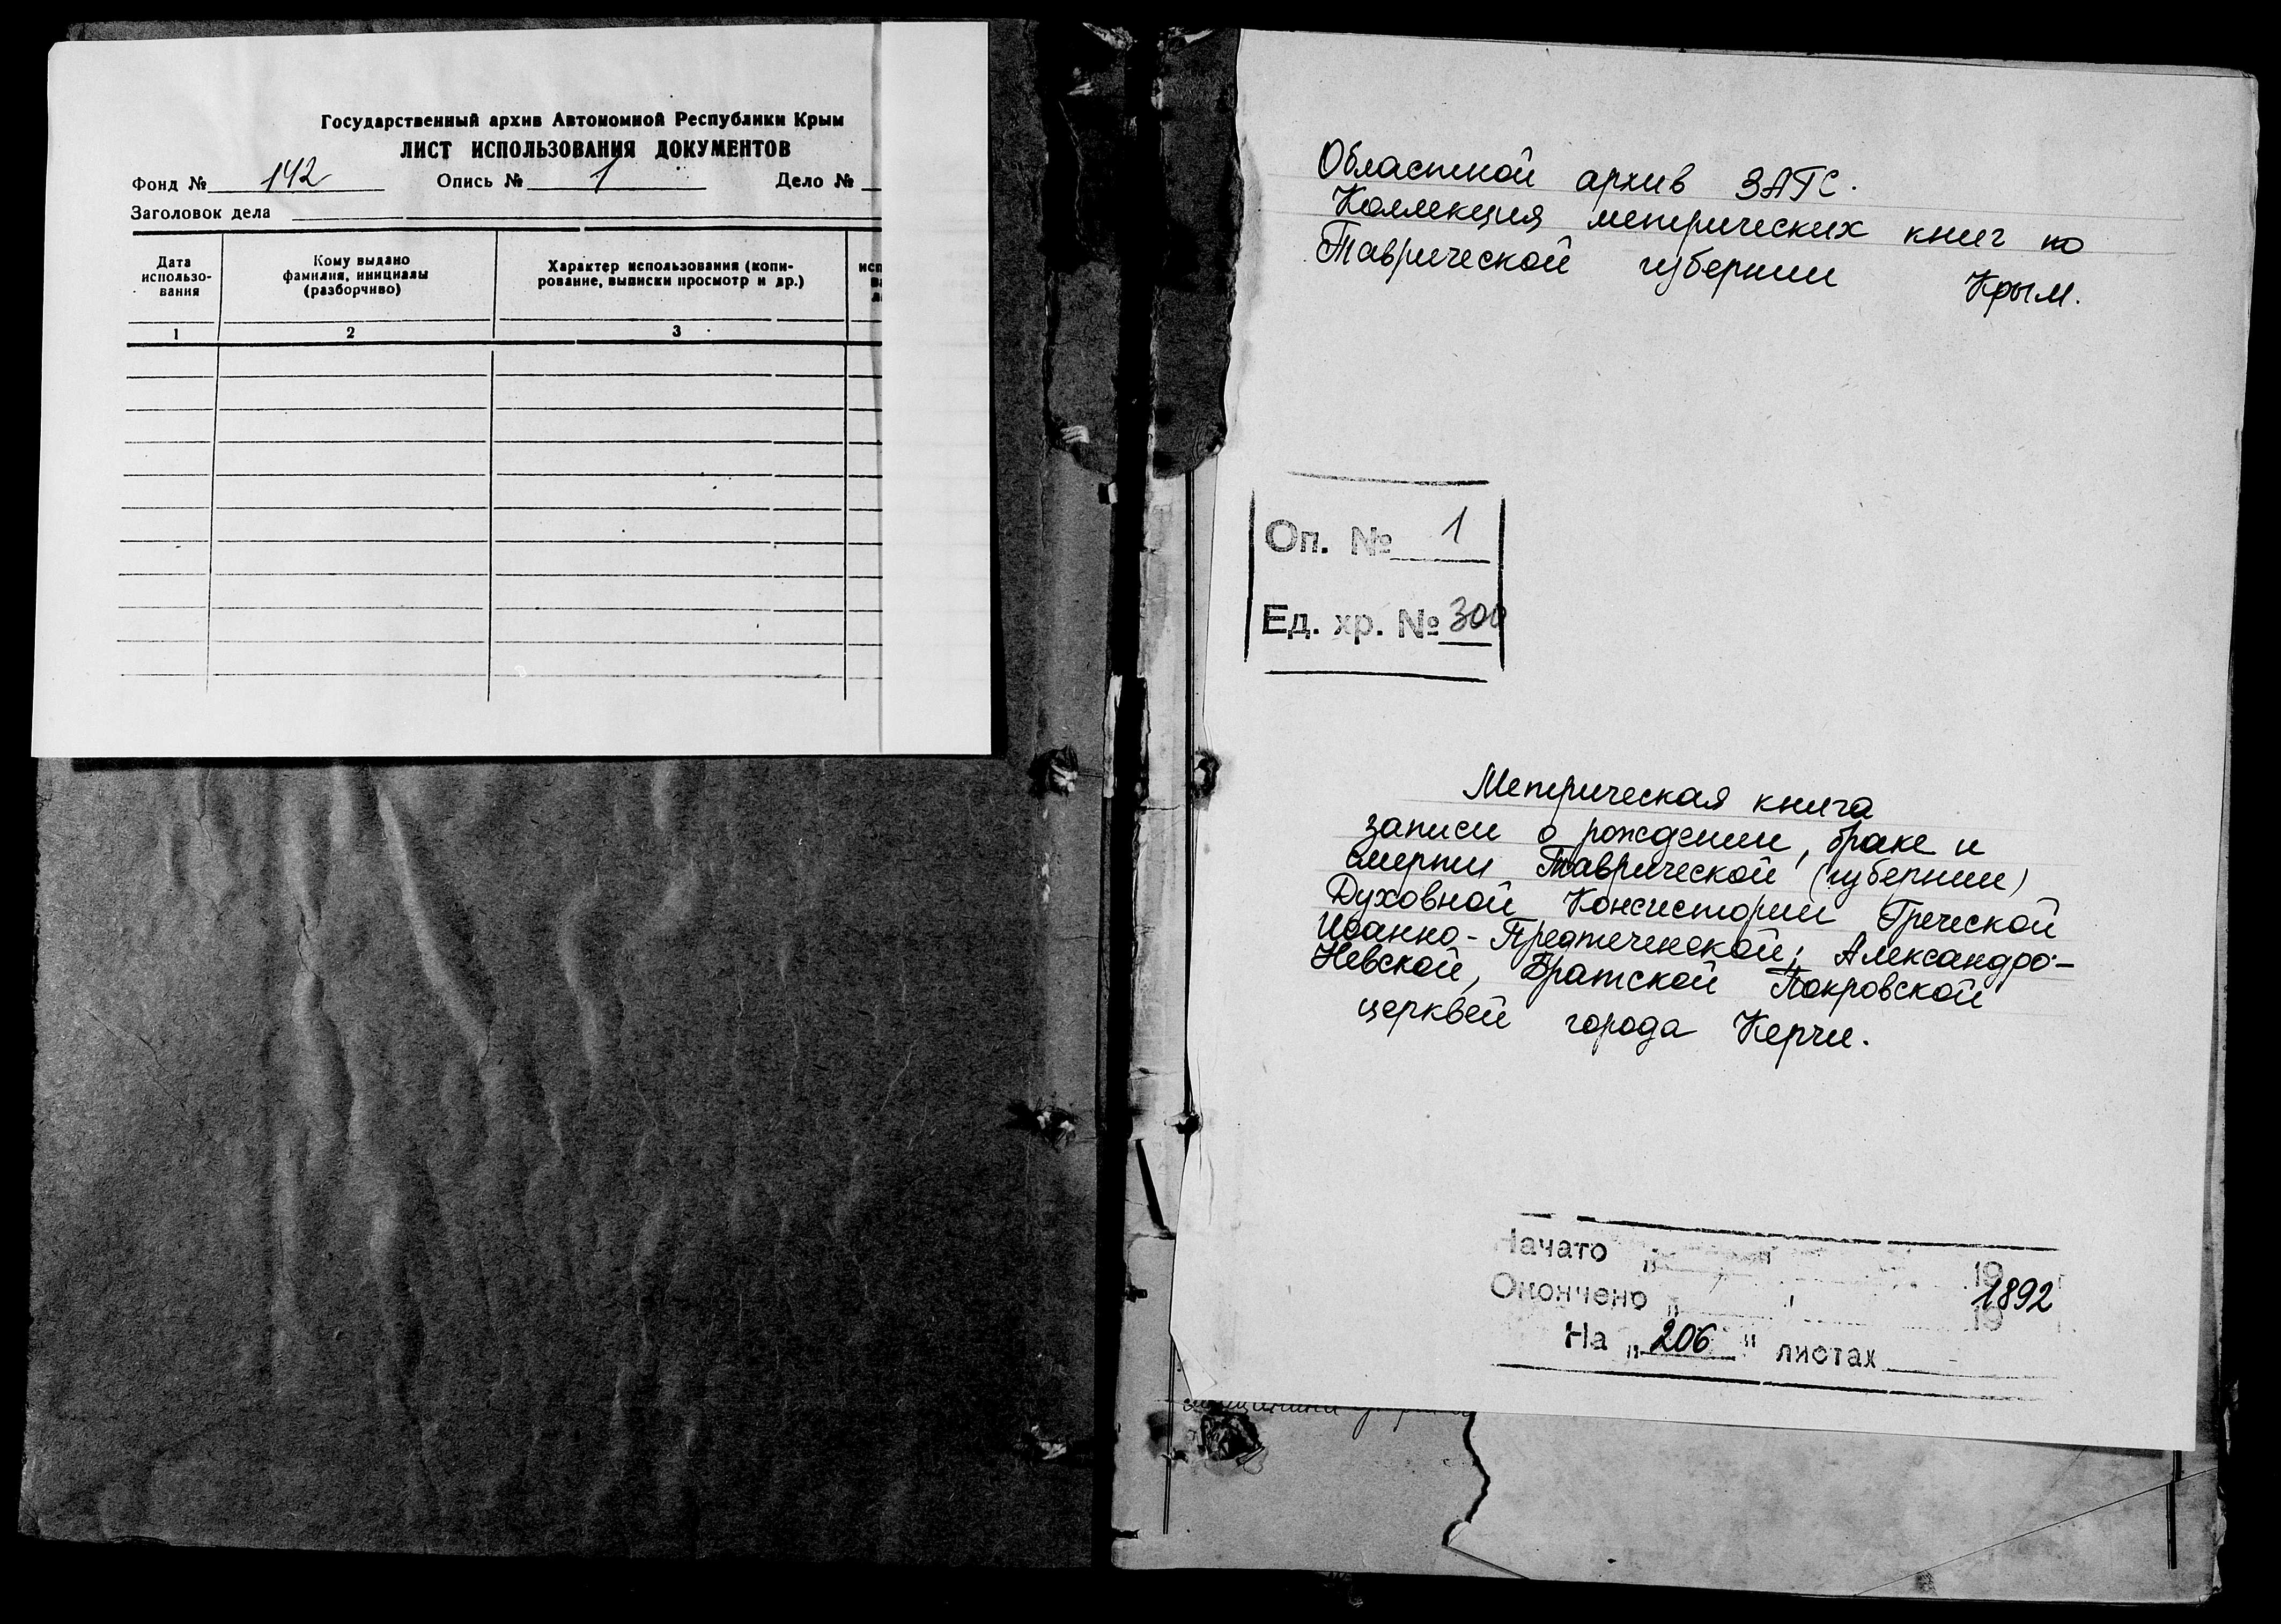 Государственный архив Автономной Республики Крым
ЛИСТ ИСПОЛЬЗОВАНИЯ ДОКУМЕНТОВ
Фонд № 142 Опись № 1 Дело №
Заголовок дела
Дата использо-вания
Кому выдано фамилия, инициалы (разборчиво)
Характер использования (копи-рование, выписки просмотр и др.)
1 2 3
Областной архив ЗАГС.
Коллекция метрических книг по
Таврической губернии Крым.
Оп. № 1
Ед. хр. № 300
Метрическая книга
записи о рождении, браке и
смерти Таврической (губернии)
Духовной Консистории Греческой
Иоанно-Предтеченской; Александро-
Невской, Братской Покровской
церквей города Керчи.
Начато " " 19
Окончено " " 1892
На "206" листах